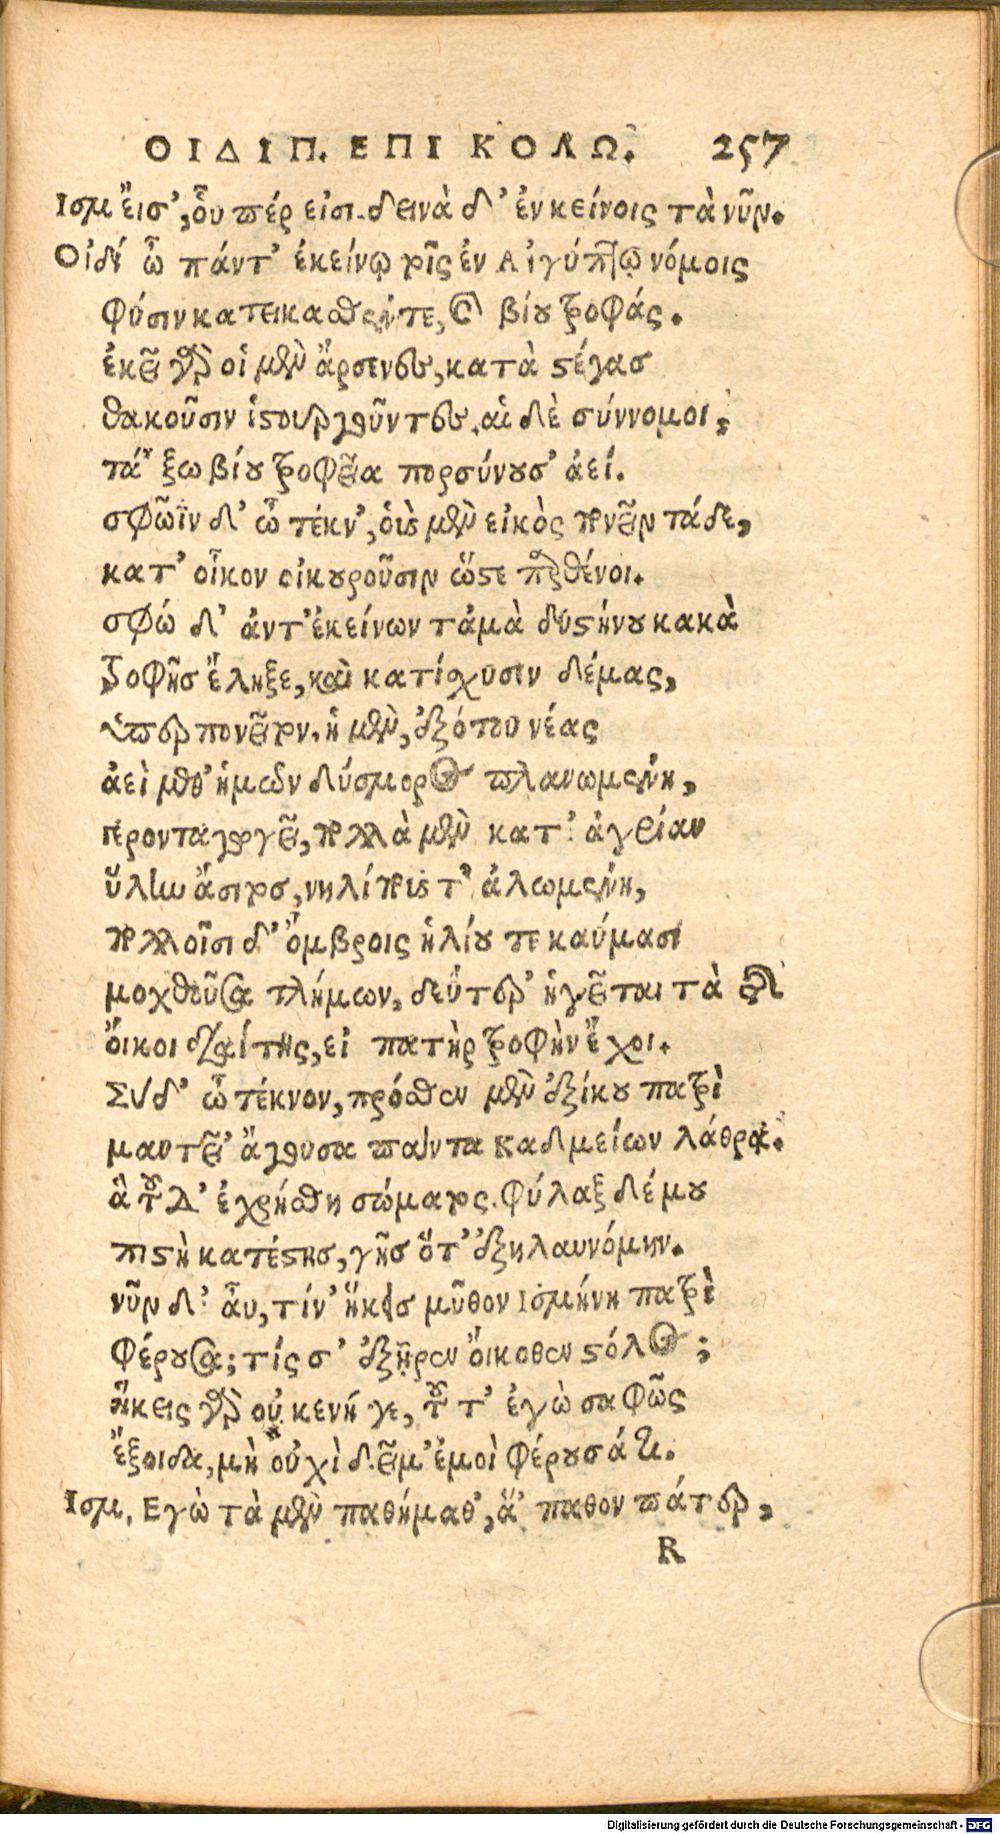 ΟΙΔΙΠ. ΕΠΙ ΚΟΛΩ. 257
Ισμ ἔισ', οὗ πέρ εἰσι. δεινὰ δ' ἐν κείνοις τὰ νῦν.
Οἰδί ὦ πάντ' ἐκείνω τοῖς ἐν Αἰγύπτῳ νόμοις
φύσιν κατεικασθέντε, καὶ βίου τροφάς.
ἐκεῖ γὰρ οἱ μὲν ἄρσενες, κατὰ στέγασ
θακοῦσιν ἱστουργοῦντες, αἱ δὲ σύννομοι,
τἄ'ξω βίου τροφεῖα πορσύνουσ' ἀεί.
σφῶϊν δ' ὦ τέκν', οἷς μὲν εἰκὸς πονεῖν τάδε,
κατ' οἶκον οἰκουροῦσιν ὥστε παρθένοι.
σφώ δ' ἀντ' ἐκείνων τἀμὰ δυστήνου κακὰ
τροφῆσ ἔληξε, καὶ κατίχυσιν δέμας,
ὑπερπονεῖτον. ἡ μὲν, ἐξότου νέας
ἀεὶ μεθ' ἡμῶν δύσμορος πλανωμένη,
γερονταγωγεῖ, πολλὰ μὲν κατ' ἀγρίαν
ὕλην ἄσιτοσ, νηλίπους τ' ἀλωμένη,
πολλοῖσι δ' ὄμβροις ἡλίου τε καύμασι
μοχθοῦσα τλήμων, δεύτερ' ἡγεῖται τὰ τῆς
ὄικοι διαίτης, εἰ πατὴρ τροφὴν ἔχοι.
Σὺ δ' ὦ τέκνον, πρόσθεν μὲν ἐξίκου πατρὶ
μαντεῖ' ἄγουσα πάντα Καδμείων λάθρα.
ἃ τοῦδ' ἐχρήσθη σώματος. φύλαξ δέ μου
πιστὴ κατέστησ, γῆσ ὅτ' ἐξηλαυνόμην.
νῦν δ' αὖ, τίν' ἥκεισ μῦθον Ισμήνη πατρὶ
φέρουσα; τίς σ' ἐξῆρεν ὄικοθεν στόλος;
ἥκεις γὰρ οὐ κενή γε, τοῦτ' ἐγὼ σαφῶς
ἔξοιδα, μὴ οὐχὶ δεῖμ' ἐμοὶ φέρουσά τι.
Ισμ. Εγὼ τὰ μὲν παθήμαθ', ἅ' παθον πάτερ,
R
Digitalisierung gefördert durch die Deutsche Forschungsgemeinschaft - DFG